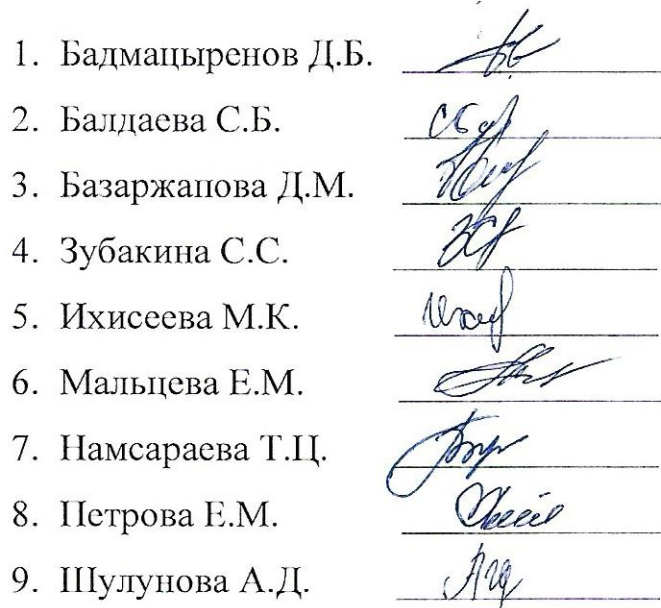 1. Бадмацыренов Д.Б.
2. Балдаева С.Б.
3. Базаржапова Д.М.
4. Зубакина С.С.
5. Ихисеева М.К.
6. Мальцева Е.М.
7. Намсараева Т.Ц.
8. Петрова Е.М.
9. Шулунова А.Д.